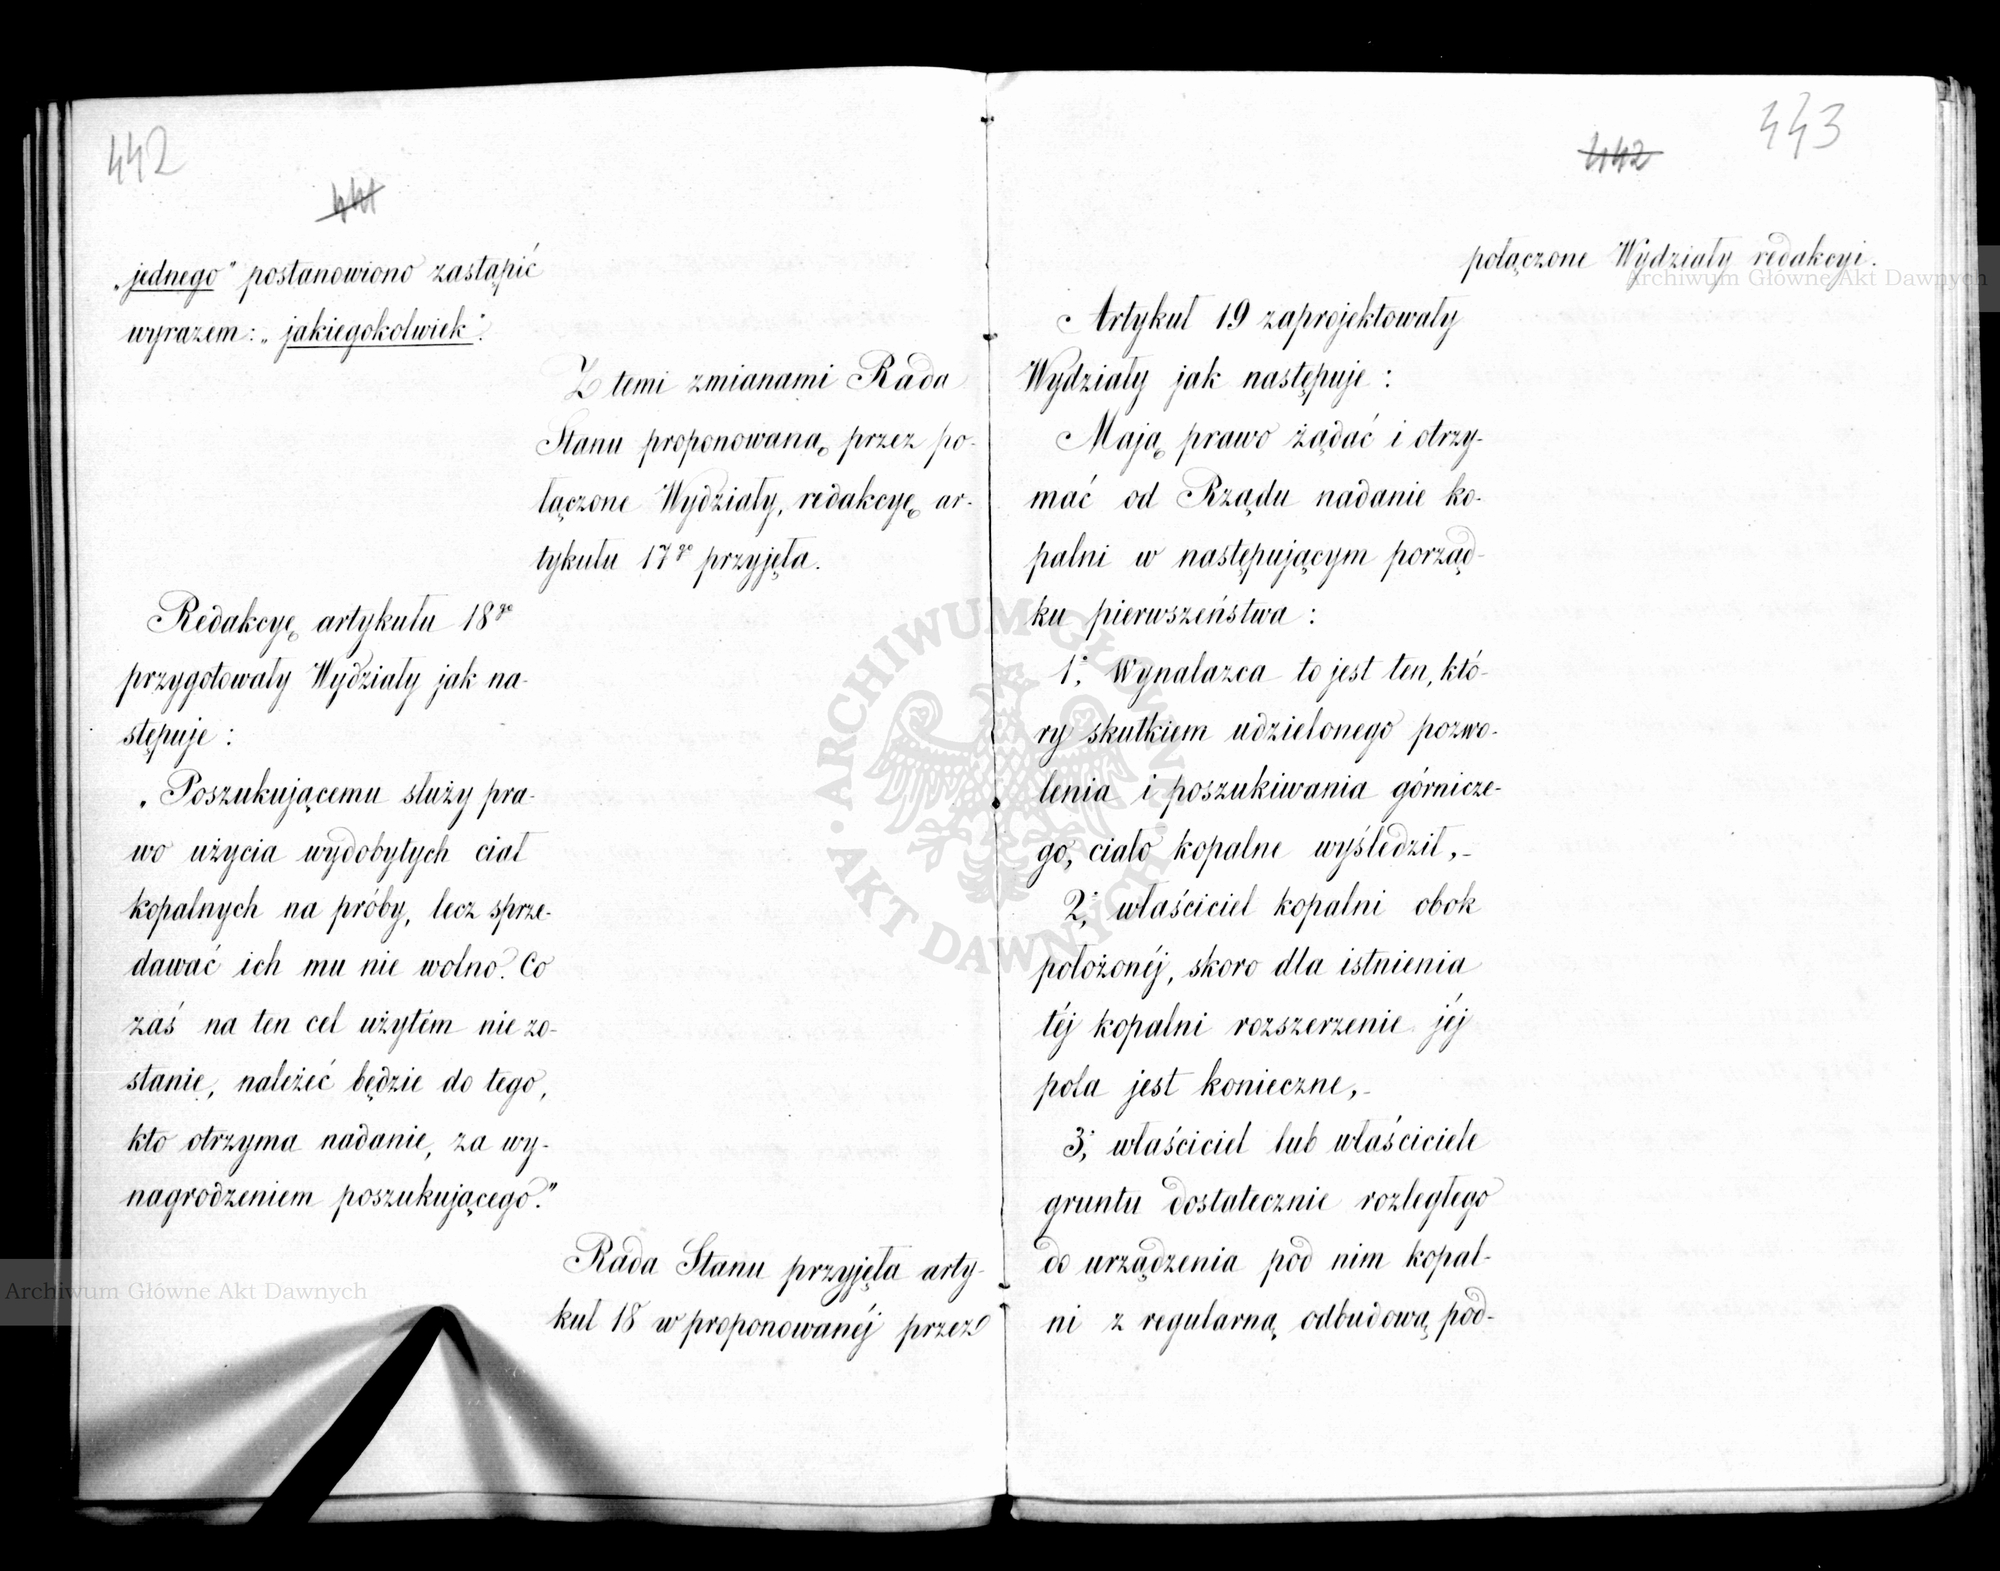 442
441
„jednego” postanowiono zastąpić
wyrazem: „jakiegokolwiek”.
Z temi zmianami Rada
Stanu proponowaną przez po-
łączone Wydziały, redakcyę ar-
tykułu 17go przyjęła.
Redakcyę artykułu 18go
przygotowały Wydziały jak na-
stępuje:
„Poszukującemu służy pra-
wo użycia wydobytych ciał
kopalnych na próby, lecz sprze-
dawać ich mu nie wolno. Co
zaś na ten cel użytém nie zo-
stanie, należeć będzie do tego,
kto otrzyma nadanie, za wy-
nagrodzeniem poszukującego.”
Rada Stanu przyjęła arty-
kuł 18 w proponowanéj przez
443
442
połączone Wydziały redakcyi.
Artykuł 19 zaprojektowały
Wydziały jak następuje:
Mają prawo żądać i otrzy-
mać od Rządu nadanie ko-
palni w następującym porząd-
ku pierwszeństwa:
1; Wynalazca to jest ten, któ-
ry skutkiem udzielonego pozwo-
lenia i poszukiwania górnicze-
go, ciało kopalne wyśledził,-
2; właściciel kopalni obok
położonéj, skoro dla istnienia
téj kopalni rozszerzenie jéj
pola jest konieczne,-
3; właściciel lub właściciele
gruntu dostatecznie rozległego
do urządzenia pod nim kopal-
ni z regularną odbudową pod-
Archiwum Główne Akt Dawnych
Archiwum Główne Akt Dawnych
ARCHIWUM GŁÓWNE AKT DAWNYCH